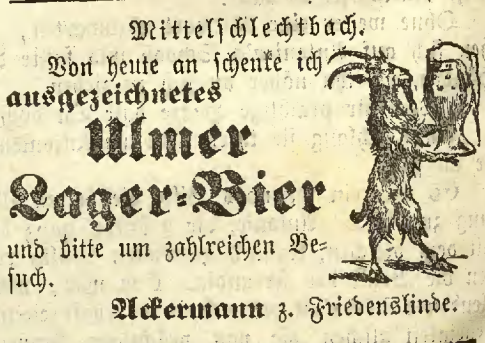 Mittelschlechtbach.
Von heute an schenke ich
ausgezeichnetes
Ulmer
Lager-Bier
und bitte um zahlreichen Be-
such.
Ackermann z. Friedenslinde.